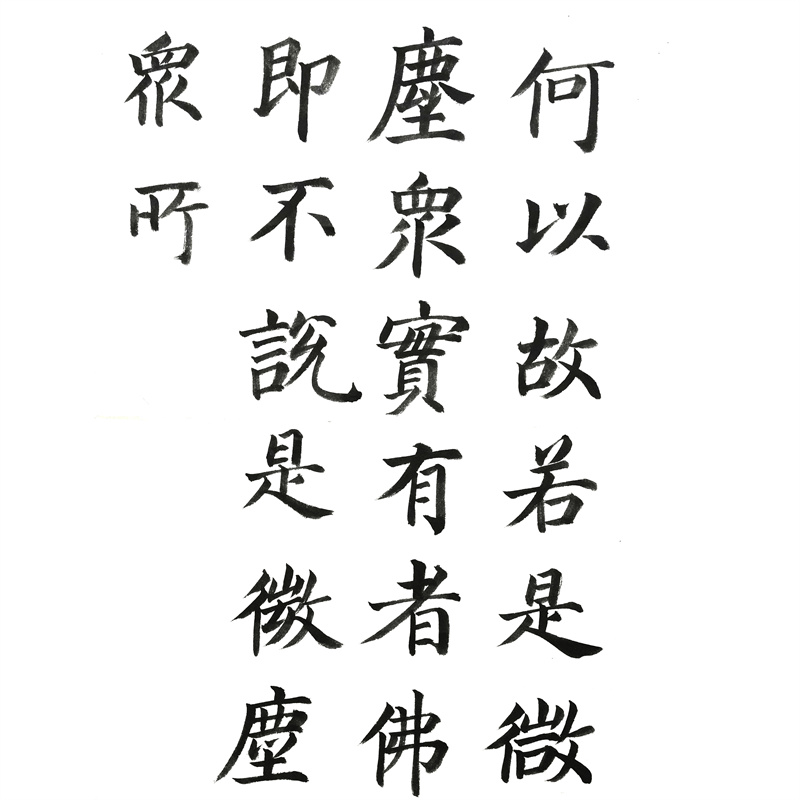 何以故若是微
塵眾實有者佛
即不說是微塵
眾所